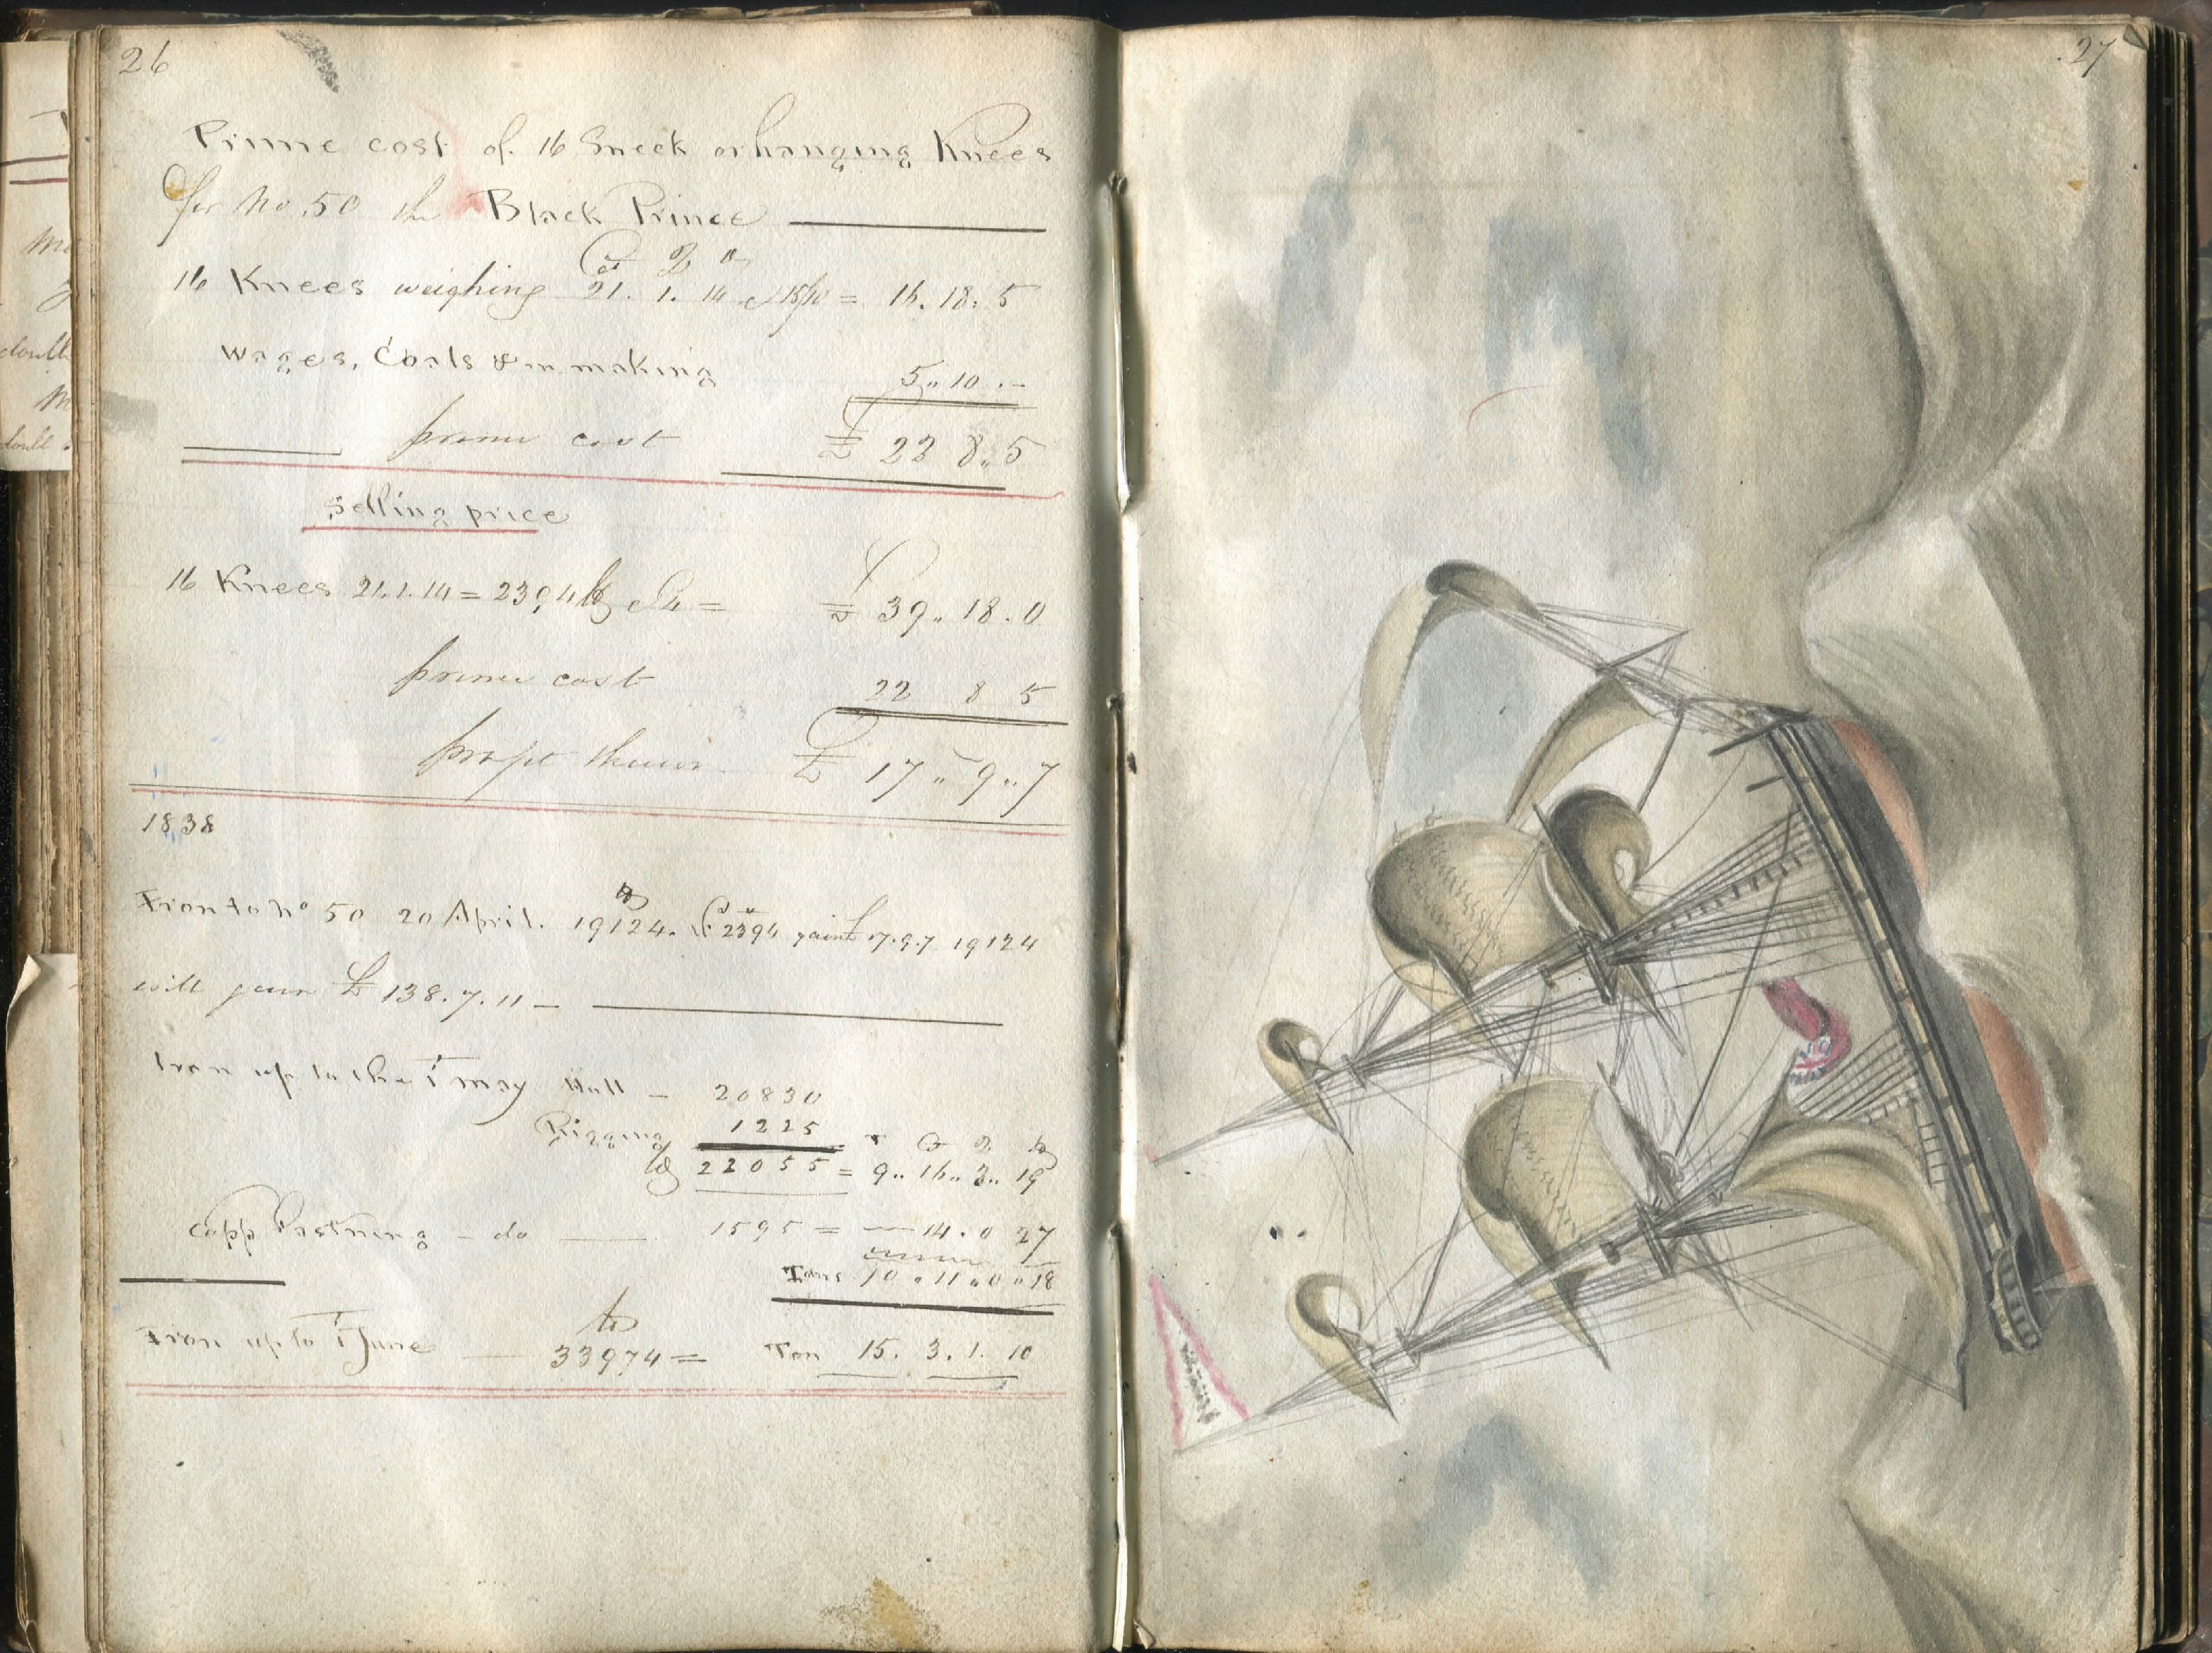 26
Prime cost of 16 Sneek or hanging Knees
for No. 50 the Black Prince
Ct Q lb
16 Knees weighing 21. 1. 14 = 16. 18. 5
Wages, Coals in making 5 " 10 . -
prime cost £ 22 8 " 5
Selling price
16 Knees 21. 1. 14 = 2394 lb @ 4 = £ 39 " 18 . 0
prime cost 22 8 5
£ 17 " 9 " 7
1838
lb
Iron to No 50 20 April. 19124. if 2394 gain £ 17.9.7 19124
will gain £ 138. 7. 11 -
Iron up to the 1 May Hull - 20830
Rigging 1225 T C Q lb
lb 22055 = 9 " 16 " 3 " 19
Copp Fastning - do 1595 = - 14 . 0 27
Tons 10 " 11 " 0 " 18
lb
Iron up to 1 June 33974 = Ton 15. 3. 1. 10
27